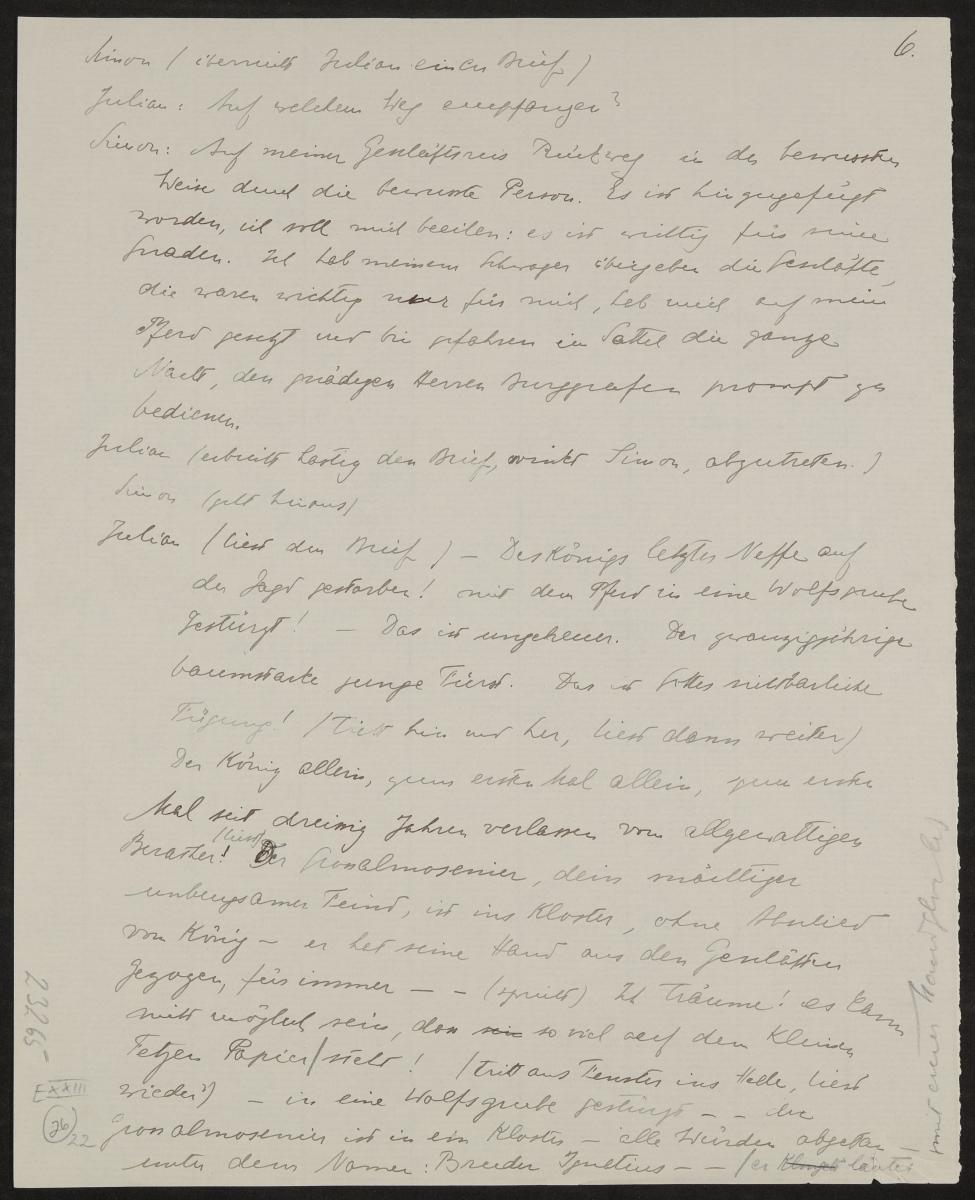 6.
Simon (übermitt Julian einen Brief)
Julian: Auf welchem Weg empfangen?
Simon: Auf meiner Geschäftsreis Rückweg in der bewussten
Weise durch die bewusste Person. Es ist hinzugefügt
worden, ich soll mich beeilen: es ist wichtig für seine
Gnaden. Ich hab meinem Schwager übergeben die Geschäfte,
die waren wichtig nur für mich, hab mich auf mein
Pferd gesetzt und bin gefahren im Sattel die ganze
Nacht, den gnädigen Herren Burggrafen prompt zu
bedienen.
Julian (erbricht hastig den Brief, winkt Simon, abzutreten.)
Simon (geht hinaus)
Julian (liest den Brief) – Des Königs letzter Neffe auf
der Jagd gestorben! mit dem Pferd in eine Wolfsgrube
gestürzt! – Das ist ungeheuer. Der zwanzigjährige
baumstarke junge Fürst. Das ist Gottes sichtbarliche
Fügung! (Tritt hin und her, liest dann weiter)
Der König allein, zum ersten Mal allein, zum ersten
Mal seit dreissig Jahren verlassen vom allgewaltigen
Berather! (liest) Der Grossalmosenier, dein mächtiger
unbeugsamer Feind, ist ins Kloster, ohne Abschied
vom König – er hat seine Hand aus den Geschäften
gezogen, für immer – – (spricht) Ich träume! es kann
nicht möglich sein, dass so viel auf dem kleinen
Fetzen Papier steht! (tritt ans Fenster ins Helle, liest
wieder) – in eine Wolfsgrube gestürzt – – der
Grossalmosenier ist in ein Kloster – alle Würden abgetan
unter dem Namen: Bruder Ignatius – – (er läutet)
23265
EXXIII
26
22